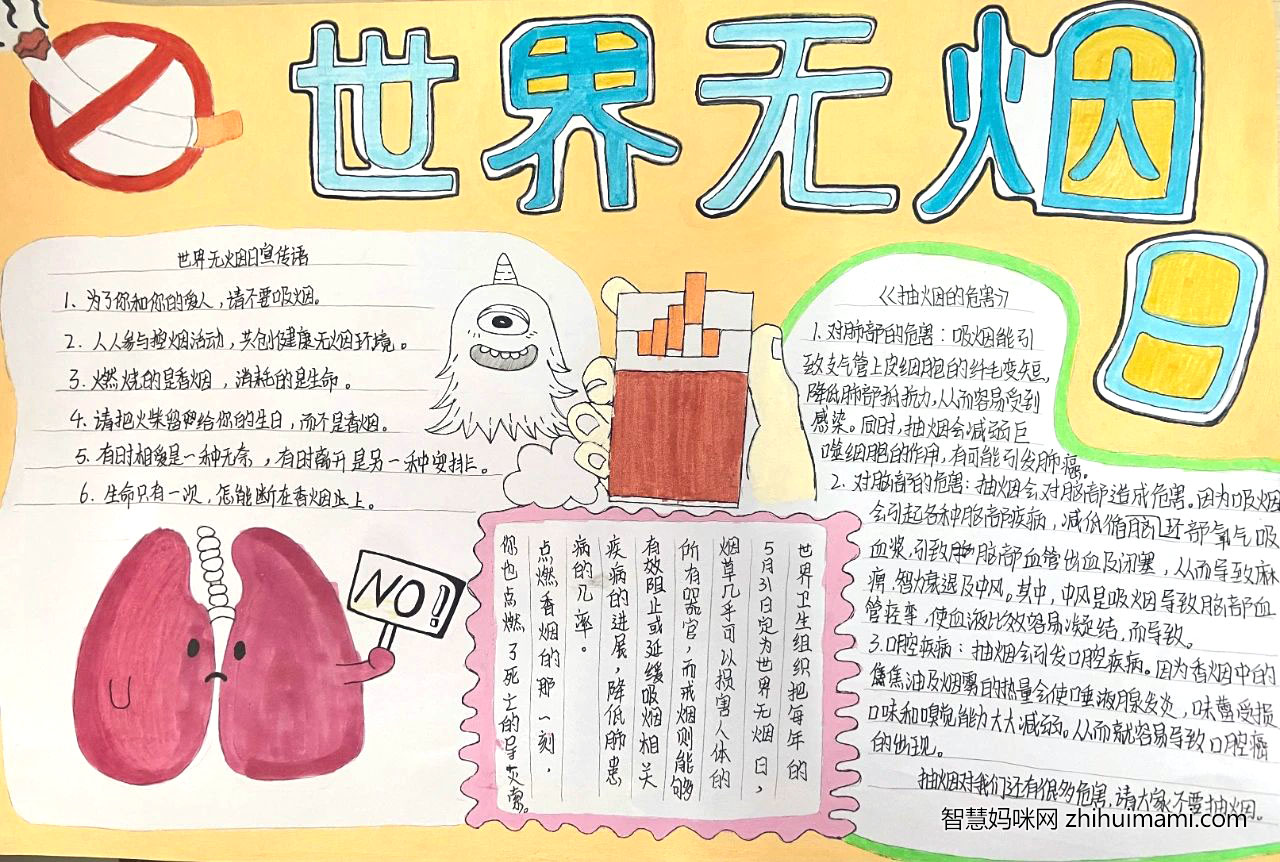 世界无烟日
世界无烟日宣传语
1、为了你和你的家人，请不要吸烟。
2、人人参与控烟活动，共创健康无烟环境。
3、燃烧的是香烟，消耗的是生命。
4、请把火柴留给你的生日，而不是香烟。
5、有时相爱是一种无奈，有时离开是另一种安排。
6、生命只有一次，怎能断在香烟上。
NO!
世界卫生组织把每年的
5月31日定为世界无烟日，
烟草几乎可以损害人体的
所有器官，而戒烟则能够
有效阻止或延缓吸烟相关
疾病的进展，降低肺患
病的几率。
点燃香烟的那一刻，
你也点燃了死亡的导火索。
《抽烟的危害》
1.对肺部的危害：吸烟能引
致支气管上皮细胞的纤毛变短，
降低肺部抵抗力，从而容易受到
感染。同时，抽烟会减弱巨
噬细胞的作用，有可能引发肺癌。
2.对脑部的危害：抽烟会对脑部造成危害。因为吸烟
会引起各种脑部疾病，减低循环部氧气吸
血浆，引致脑部血管出血及闭塞，从而导致麻
痹，智力衰退及中风。其中，中风是吸烟导致脑部血
管痉挛，使血液比较容易凝结，而导致。
3.口腔疾病：抽烟会引发口腔疾病。因为香烟中的
焦油及烟雾的热量会使唾液腺发炎，味蕾受损
口味和嗅觉能力大大减弱。从而就容易导致口腔癌
的出现。
抽烟对我们还有很多危害，请大家不要抽烟。
智慧妈咪网 zhihuimami.com